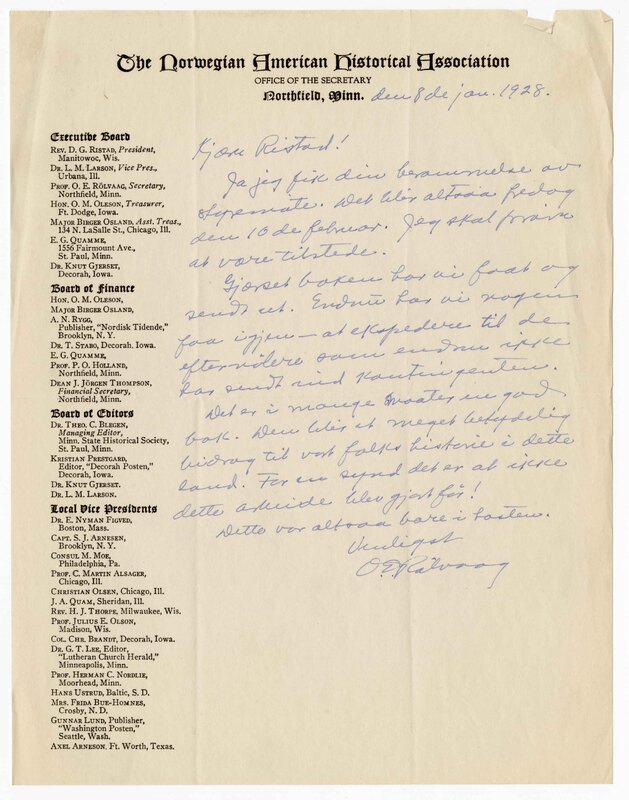 The Norwegian American Historical Association
OFFICE OF THE SECRETARY
Northfield, Minn. den 8 de jan. 1928.
Executive Board
REV. D. G. RISTAD, President,
Manitowoc, Wis.
DR. L. M. LARSON, Vice Pres.,
Urbana, Ill.
PROF. O. E. RÖLVAAG, Secretary,
Northfield, Minn.
HON. O. M. OLESON, Treasurer,
Ft. Dodge, Iowa.
MAJOR BIRGER OSLAND, Asst. Treas.,
134 N. LaSalle St., Chicago, Ill.
E. G. QUAMME,
1556 Fairmount Ave.,
St. Paul, Minn.
DR. KNUT GJERSET,
Decorah, Iowa.
Board of Finance
HON. O. M. OLESON,
MAJOR BIRGER OSLAND,
A. N. RYGG,
Publisher, "Nordisk Tidende,"
Brooklyn, N. Y.
DR. T. STABO, Decorah, Iowa.
E. G. QUAMME,
PROF. P. O. HOLLAND,
Northfield, Minn.
DEAN J. JÖRGEN THOMPSON,
Financial Secretary,
Northfield, Minn.
Board of Editors
DR. THEO. C. BLEGEN,
Managing Editor,
Minn. State Historical Society,
St. Paul, Minn.
KRISTIAN PRESTGARD,
Editor, "Decorah Posten,"
Decorah, Iowa.
DR. KNUT GJERSET.
DR. L. M. LARSON.
Local Vice Presidents
DR. E. NYMAN FIGVED,
Boston, Mass.
CAPT. S. J. ARNESEN,
Brooklyn, N. Y.
CONSUL M. MOE,
Philadelphia, Pa.
PROF. C. MARTIN ALSAGER,
Chicago, Ill.
CHRISTIAN OLSEN, Chicago, Ill.
J. A. QUAM, Sheridan, Ill.
REV. H. J. THORPE, Milwaukee, Wis.
PROF. JULIUS E. OLSON,
Madison, Wis.
COL. CHR. BRANDT, Decorah, Iowa.
DR. G. T. LEE, Editor,
"Lutheran Church Herald,"
Minneapolis, Minn.
PROF. HERMAN C. NORDLIE,
Moorhead, Minn.
HANS USTRUD, Baltic, S. D.
MRS. FRIDA BUE-HOMNES,
Crosby, N. D.
GUNNAR LUND, Publisher,
"Washington Posten,"
Seattle, Wash.
AXEL ARNESON, Ft. Worth, Texas.
Kjære Ristad!
Ja jeg fik din berammelse av
. Det blir altsaa fredag
den 10 de februar. Jeg skal prøve
at være tilstede.
Gjerset boken har vi faat og
sendt ut. Endnu har vi nogen
faa igjen — at ekspedere til de
efternölere som endnu ikke
har sendt ind kontingenten.
Det er i mange maater en god
bok. Den blir et meget betydelig
bidrag til vort folks historie i dette
land. For en synd det er at ikke
dette arbeide blev gjort för!
Dette var altsaa bare i hasten.
Venligst
O. E. Rölvaag